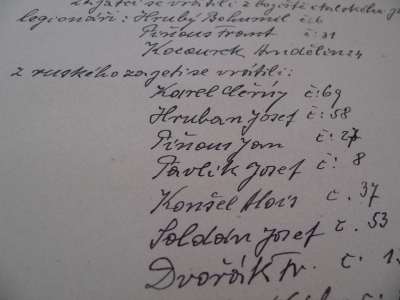 zajatci se vrátili z bojiště italského
legionáři: Hrubý Bohumil č: 6
Piňous Frant č: 31
Kotourek Andělín 24
z ruského zajetí se vrátili:
Karel Černý č: 69
Hruban Josef č: 58
Piňous Jan č: 27
Pavlík Josef č: 8
Konšel Alois č. 37
Soldán Josef č. 53
Dvořák Fr. č: